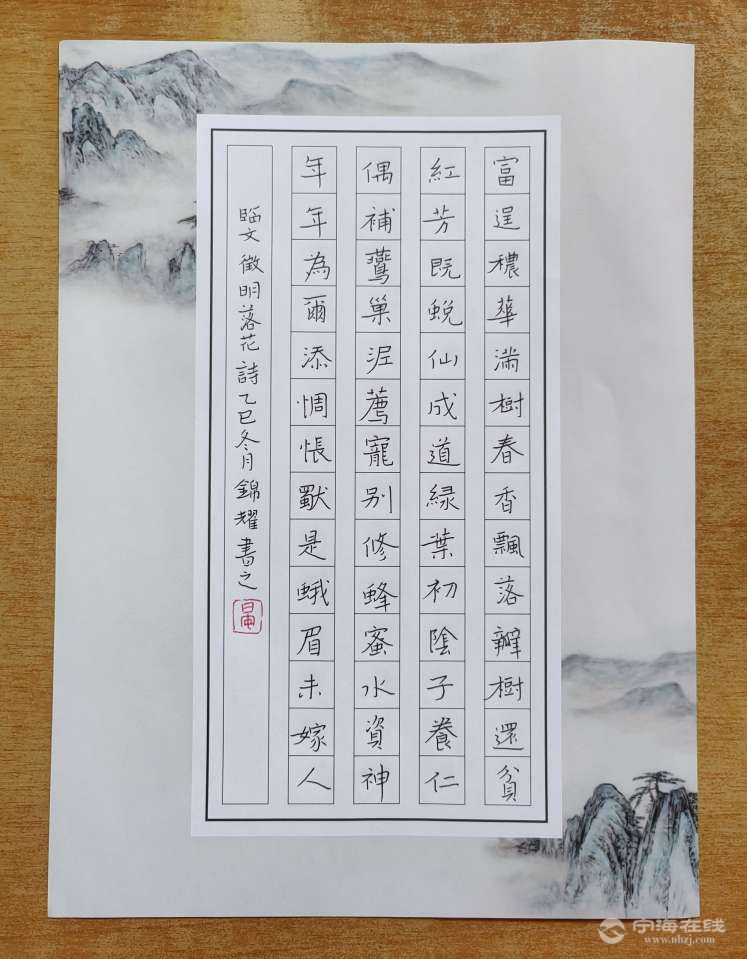 富逞穠華滿樹春香飄落瓣樹還貧
紅芳既蛻仙成道綠葉初陰子養仁
偶補鷰巢泥薦寵別修蜂蜜水資神
年年為爾添惆悵獨是蛾眉未嫁人
臨文徵明落花詩乙巳冬月錦耀書之
宁海在线
www.nhzj.com